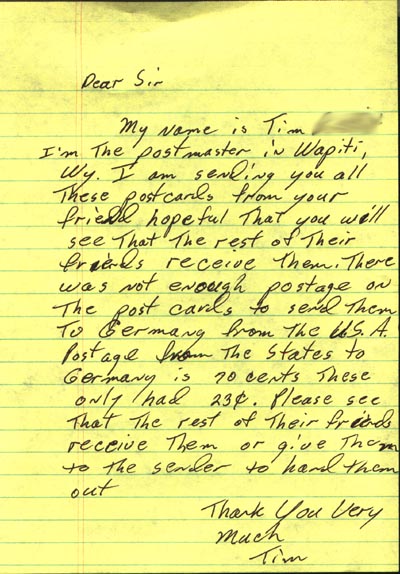 Dear Sir
My name is Tim
I'm The postmaster in Wapiti,
Wy. I am sending you all
These postcards from your
friend hopeful That you will
see That The rest of Their
friends receive Them. There
was not enough postage on
The post cards to send Them
To Germany from The U.S.A.
Postage from The States to
Germany is 70 cents These
only had 23¢. Please see
That The rest of Their friends
receive Them or give Them
to The sender to hand Them
out
Thank You Very
Much
Tim